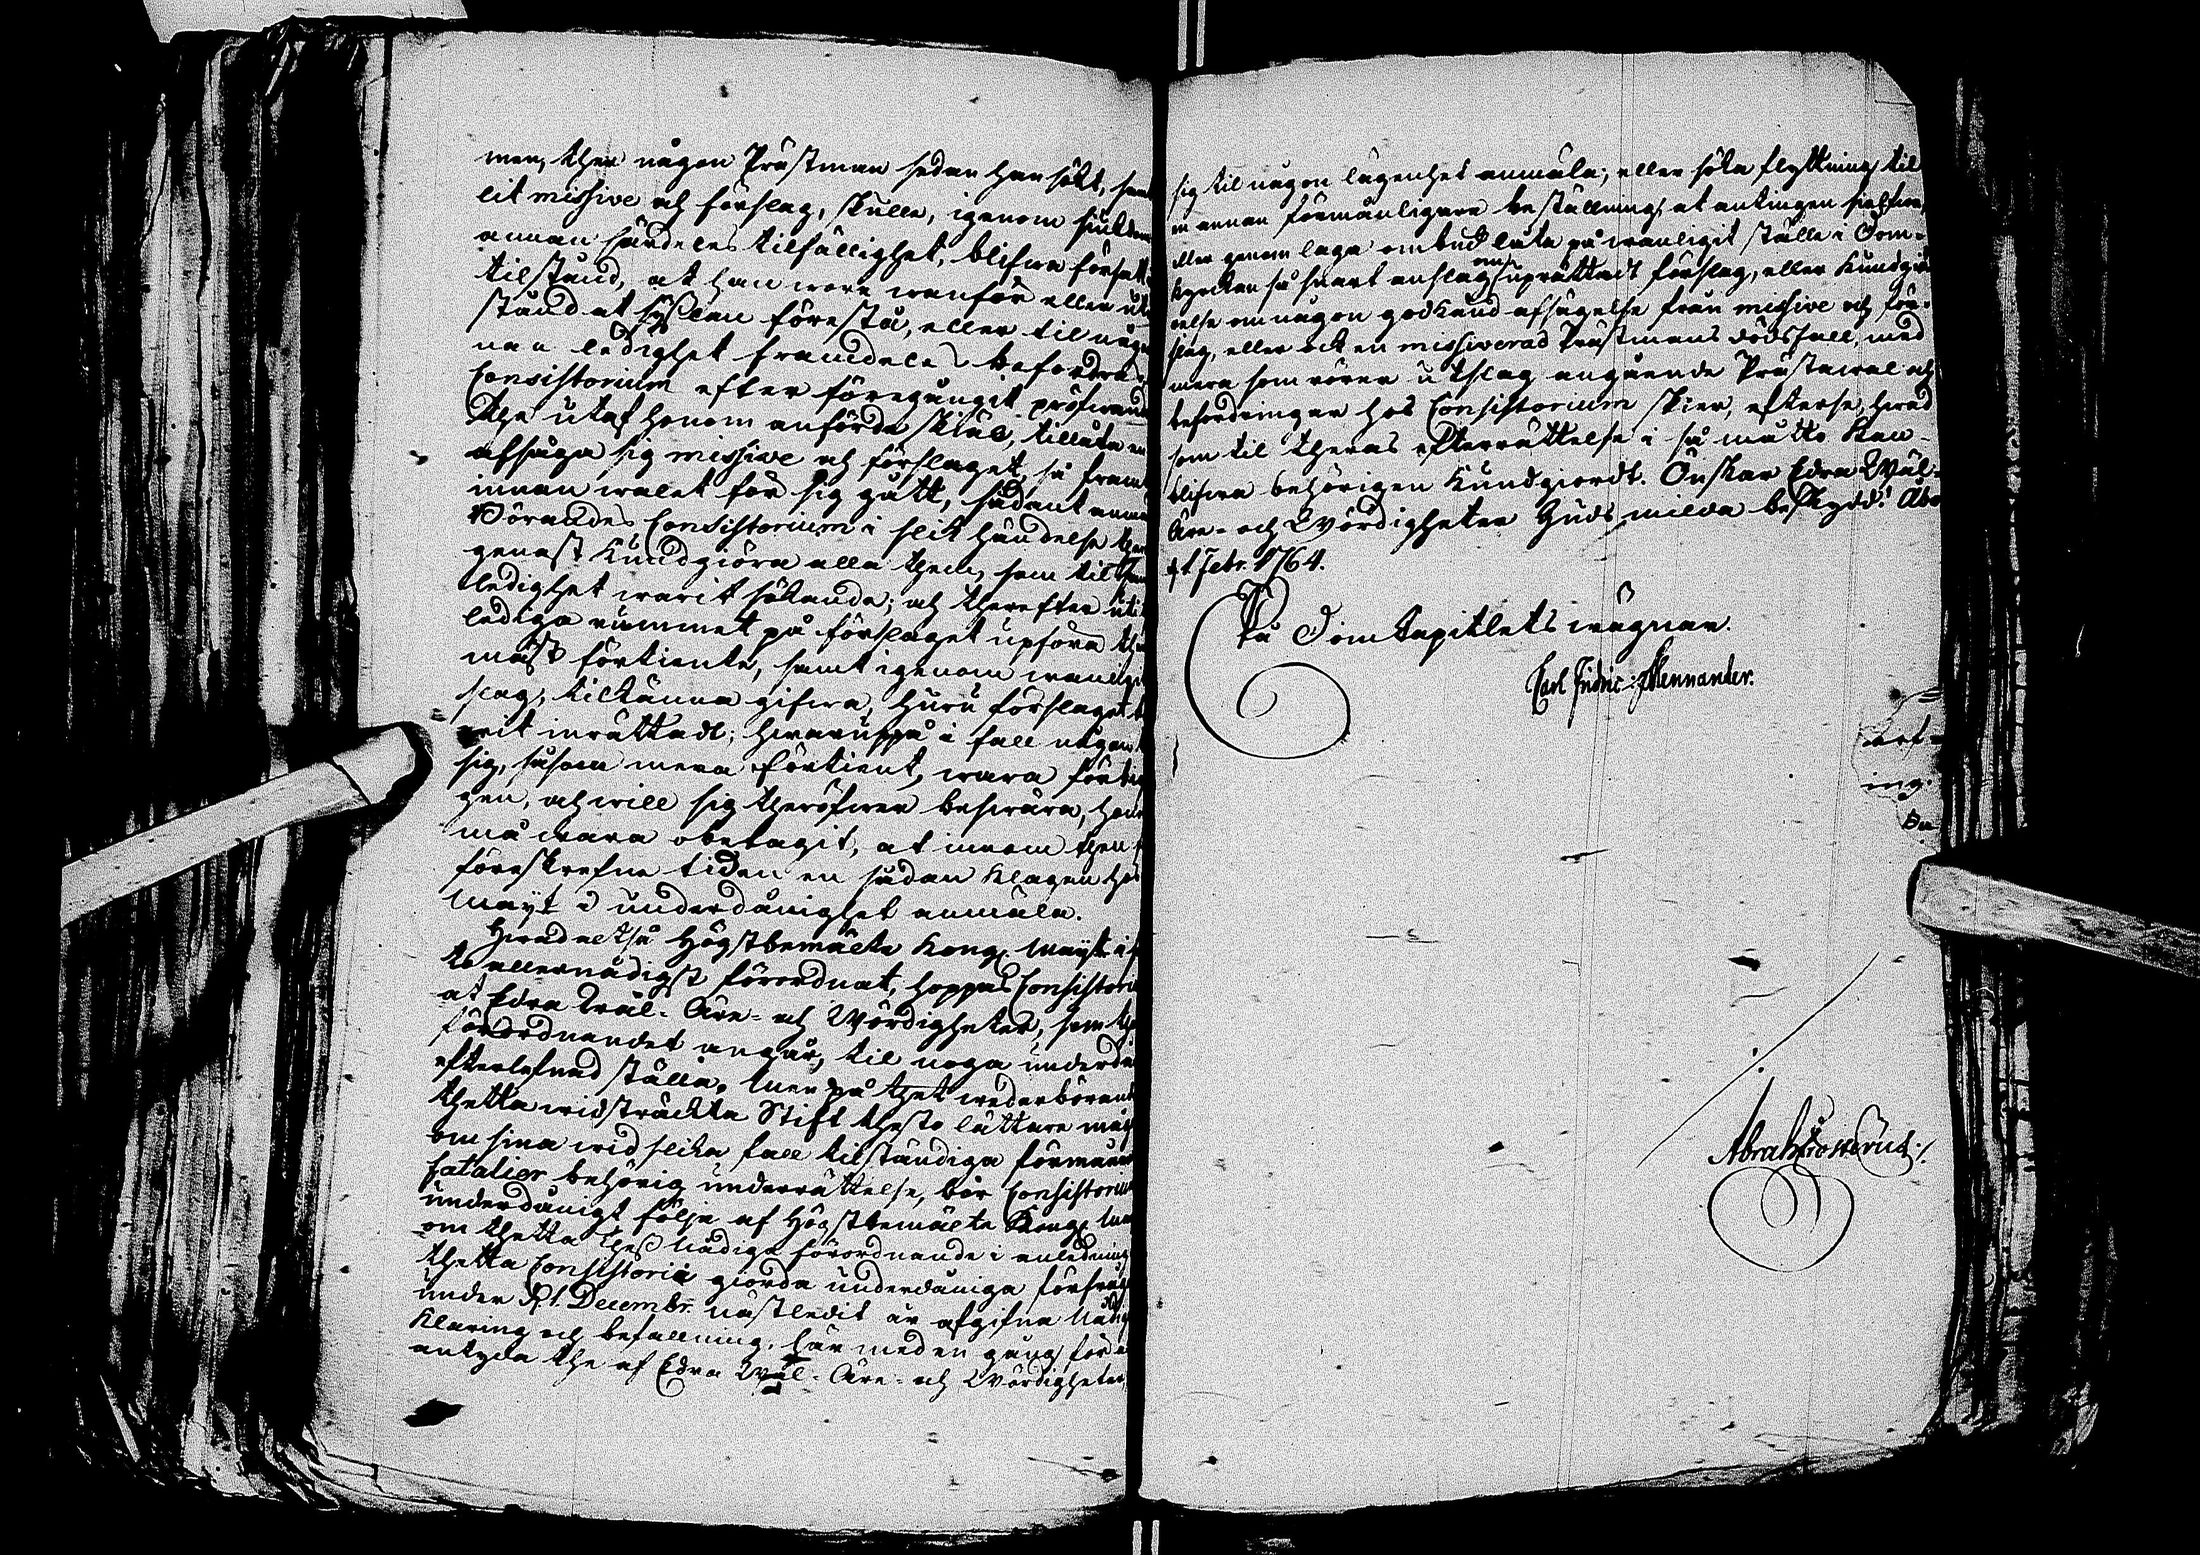 men, ther någon Prästman sedan han sökt, samt
lit missive och förslag, skulle, igenom siukdom
annan särdeles tilfällighet, blifwa försatt i
tilstånd, at han wore wanför eller ur
stånd at syßlan förestå, eller til någon
nan ledighet framdeles befordras,
Consistorium efter föregångit pröfwande
the utaf honom anförde skiäl, tillåta en
afsäga sig missive och förslaget, så framt
innan walet för sig gått, sådant
Börandes Consistorium i slik händelse then
genast kundgiöra alla them, som til
ledighet warit sökande; och therefter uti
lediga rummet på förslaget upföra then
mäst förtiente, samt igenom wanligt
slag, tilkänna gifwa, huru förslaget
wit inrättadt; hwaruppå i fall någon
sig, såsom mera förtient, wara förbi
gen, och will sig theröfwer beswära, honom
må wara obetagit, at innom then
föreskrefne tiden en sådan klagan hos
Mayt i underdånighet anmäla.
Hwad altså Högstbemälte Kongl. Mayt i
te allernådigst förordnat, hoppas Consistorium
at Edra Wäl- Äre- och Wördigheter, som
förordnandet angår, til noga underdånig
efterlefnad ställa. Men på thet wederbörande
thetta widsträckta Stift thesto lättare måge
om sina wid slika fall tilständiga förmåner
fatalier behörig underrättelse, bör Consistorium
underdånigt följe af Högstbemälte Kongl. May
om thetta theß Nådiga förordnande i anledning
thetta Consistorii giorda underdåniga förfrågan
under d. 1. Decembr. nästledit år afgifna Nådiga
klaring och befallning, här med en gång för alla
antyda the af Edra Wäl- Äre- och Wördigheter,
sig til någon lägenhet anmäla, eller söka flyttning til
en annan förmånligare beställning, at antingen sielfwe,
eller genom laga ombud låta på wanligit ställe i Dom-
kyrckan så snart anslag om uprättadt förslag, eller kundgiö-
relse om någon godkänd afsägelse från missive och för-
slag, eller ock en missiverad Prästmans dödsfall, med
mera som rörer utslag angående Prästawal och
befordringar hos Consistorium skier, efterse, hwad
som til theras efterrättelse i så måtto kan
blifwa behörigen kundgiordt. Önskar Edra Wäl-
Äre- och Wördigheter Guds milda beskydd! Åbo
d. 1 Febr. 1764.
På DomCapitlets wägnar.
Carl Fridric: Mennander.